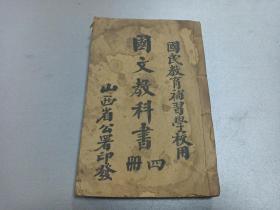 國民教育補習學校用
國文教科書
四册
山西省公署印發